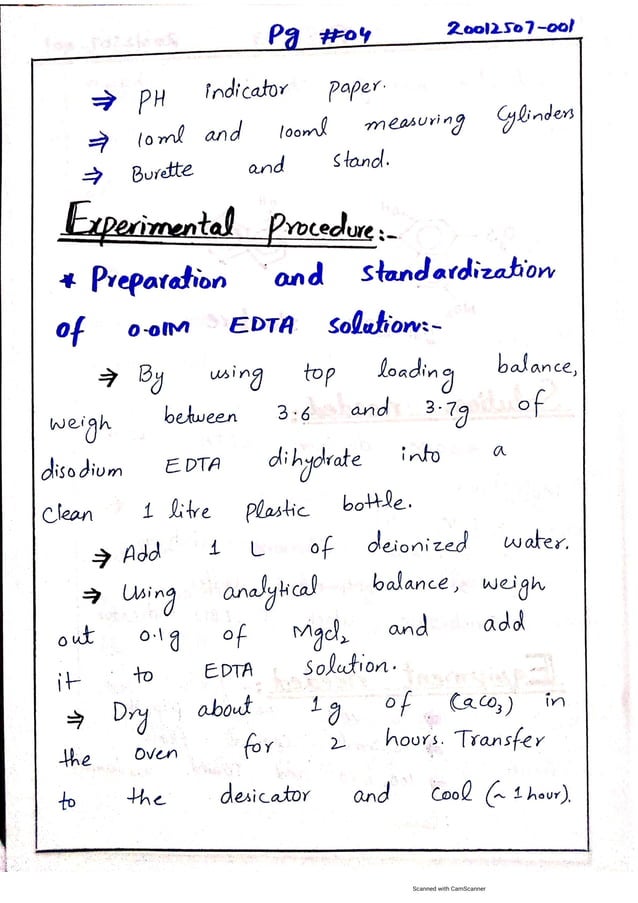 Pg #04
20012507-001
⇒ PH indicator paper.
⇒ 10ml and 100ml measuring Cylinders
⇒ Burette and stand.
Experimental Procedure:-
* Preparation and standardization
of 0.01M EDTA solution:-
⇒ By using top loading balance,
weigh between 3.6 and 3.7g of
disodium EDTA dihydrate into a
Clean 1 litre plastic bottle.
⇒ Add 1 L of deionized water.
⇒ Using analytical balance, weigh
out 0.1g of Mgcl₂ and add
it to EDTA solution.
⇒ Dry about 1g of (CaCO₃) in
the oven for 2 hours. Transfer
to the desicator and cool (~ 1 hour).
Scanned with CamScanner